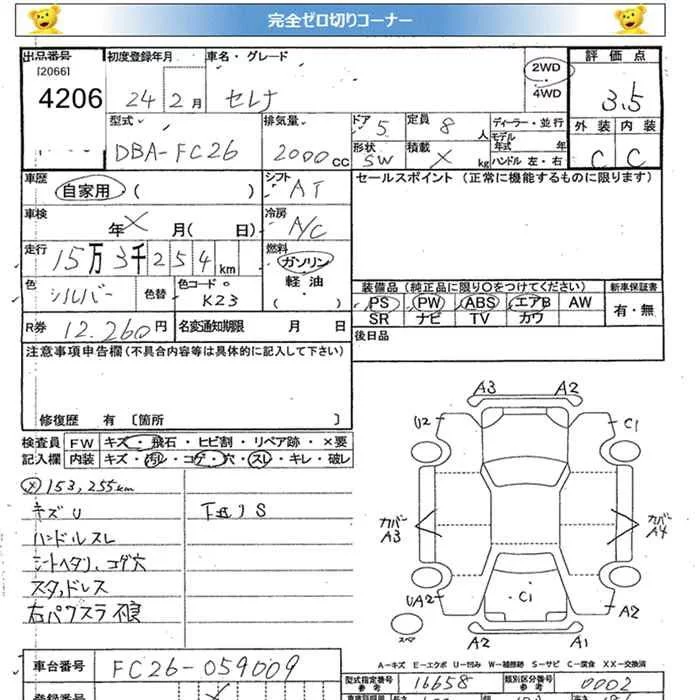 完全ゼロ切りコーナー
出品番号 初度登録年月 車名・グレード 評価点
[2066] 2WD
4206 24 2月 セレナ 4WD 3.5
型式 排気量 ドア 5 定員 8 人 ディーラー・並行 外装 内装
モデル年式 年
DBA-FC26 2000cc 形状 SW 積載 × kg ハンドル 左・右 C C
車歴 自家用 ( ) シフト AT セールスポイント (正常に機能するものに限ります)
車検 年 × 月( 日) 冷房 A/C
走行 15万3千254km 燃料 ガソリン
軽油
( )
色 シルバー 色替 色コード K23 装備品 (純正品に限り○をつけてください) 新車保証書
PS PW ABS エアB AW 有・無
R券 12,260円 名変通知期限 月 日 SR ナビ TV カワ
注意事項申告欄(不具合内容等は具体的に記入して下さい) 後日品
修復歴 有 〔箇所 〕
検査員 FW キズ・飛石・ヒビ割・リペア跡・×要
記入欄 内装 キズ・汚レ・コゲ・穴・スレ・キレ・破レ
ⓧ 153,255km
キズU 下回りS
ハンドルスレ
シートヘタリ、コゲ穴
スタッドレス
右パワスラ不良
A3 A2
U2 C1
カバー A3 カバー A4
C1
UA2 A2
スペア
A2 A1
A-キズ E-エクボ U-凹み W-補修跡 S-サビ C-腐食 XX-交換済
車台番号 FC26-059009 型式指定番号 参考 16658 類別区分番号 参考 0002